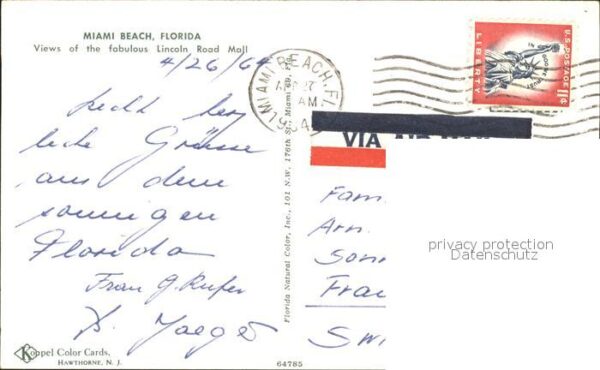 MIAMI BEACH, FLORIDA
Views of the fabulous Lincoln Road Mall
4/26/64
recht herz
liche Grüsse
aus dem
sonnigen
Florida
Frau G.
Koppel Color Cards,
HAWTHORNE, N. J.
Florida Natural Color, Inc., 101 N.W. 176th St., Miami 69, Fla.
64785
MIAMI BEACH, FL
AM
U.S. POSTAGE 11¢
LIBERTY
IN GOD WE TRUST
VIA
Fam.
Arn.
Sonn
Frau
Swi
privacy protection
Datenschutz